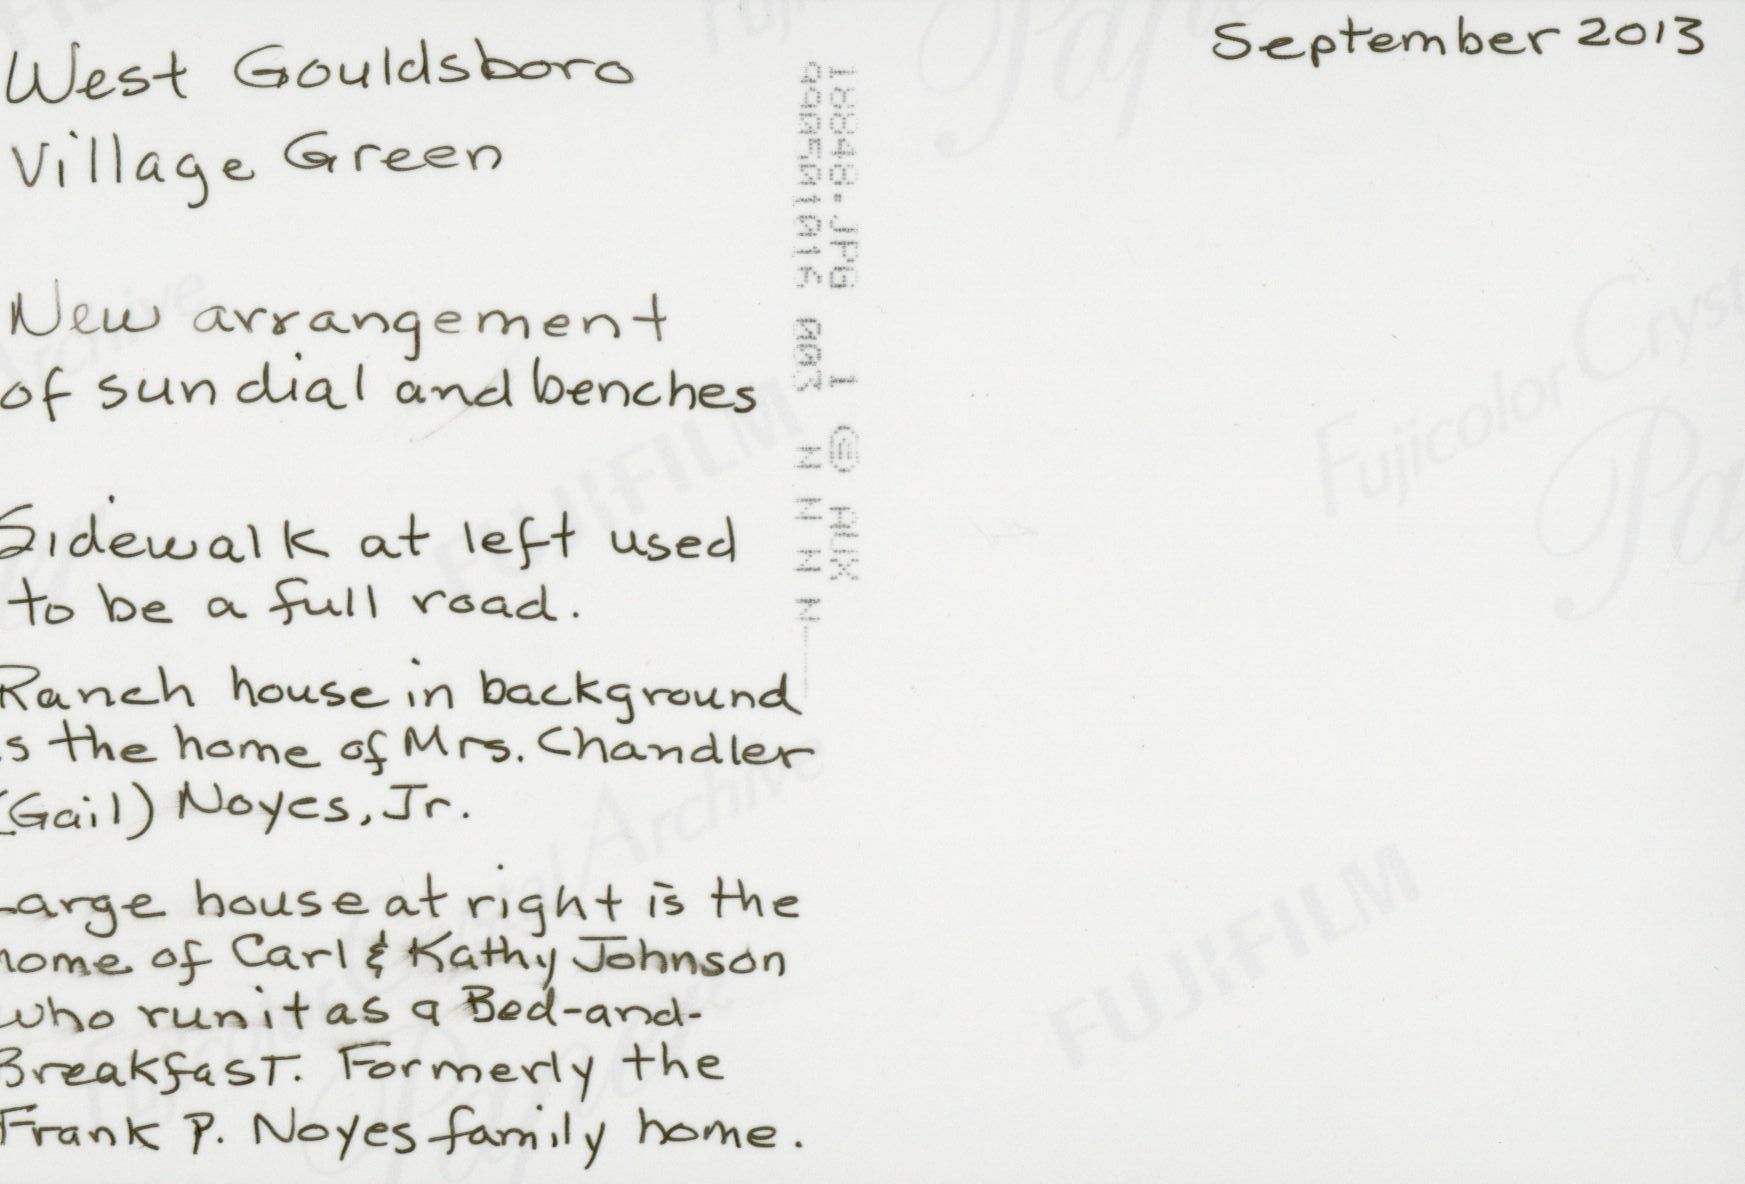 West Gouldsboro
Village Green
September 2013
New arrangement
of sundial and benches
Sidewalk at left used
to be a full road.
Ranch house in background
is the home of Mrs. Chandler
(Gail) Noyes, Jr.
Large house at right is the
home of Carl & Kathy Johnson
who run it as a Bed-and-
Breakfast. Formerly the
Frank P. Noyes family home.
18848.JPG 1 @ AUX
003 N N N N
FUJIFILM
Fujicolor Crystal Archive
Paper
FUJIFILM
Fujicolor Cryst
Pap
Archive
FUJIFILM